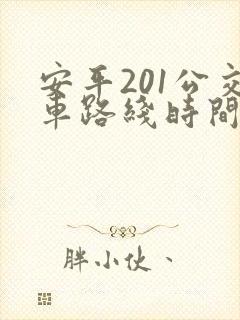 安平201公交
車路綫時間
胖小伙、